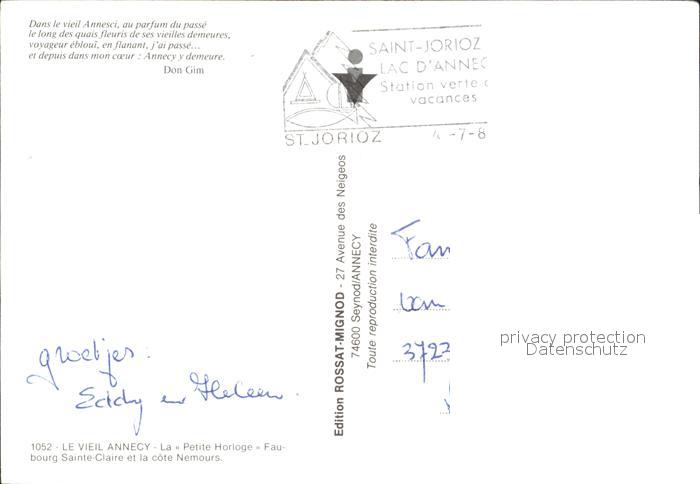 Dans le vieil Annesci, au parfum du passé
le long des quais fleuris de ses vieilles demeures,
voyageur ébloui, en flanant, j'ai passé...
et depuis dans mon cœur : Annecy y demeure.
Don Gim
SAINT-JORIOZ
LAC D'ANNEC
Station verte d
vacances
ST_JORIOZ
4 -7-8
Edition ROSSAT-MIGNOD - 27 Avenue des Neigeos
74600 Seynod/ANNECY
Toute reproduction interdite
Fam
van
3722
groetjes:
Eddy en Heleen.
privacy protection
Datenschutz
1052 - LE VIEIL ANNECY - La « Petite Horloge » Fau-
bourg Sainte-Claire et la côte Nemours.